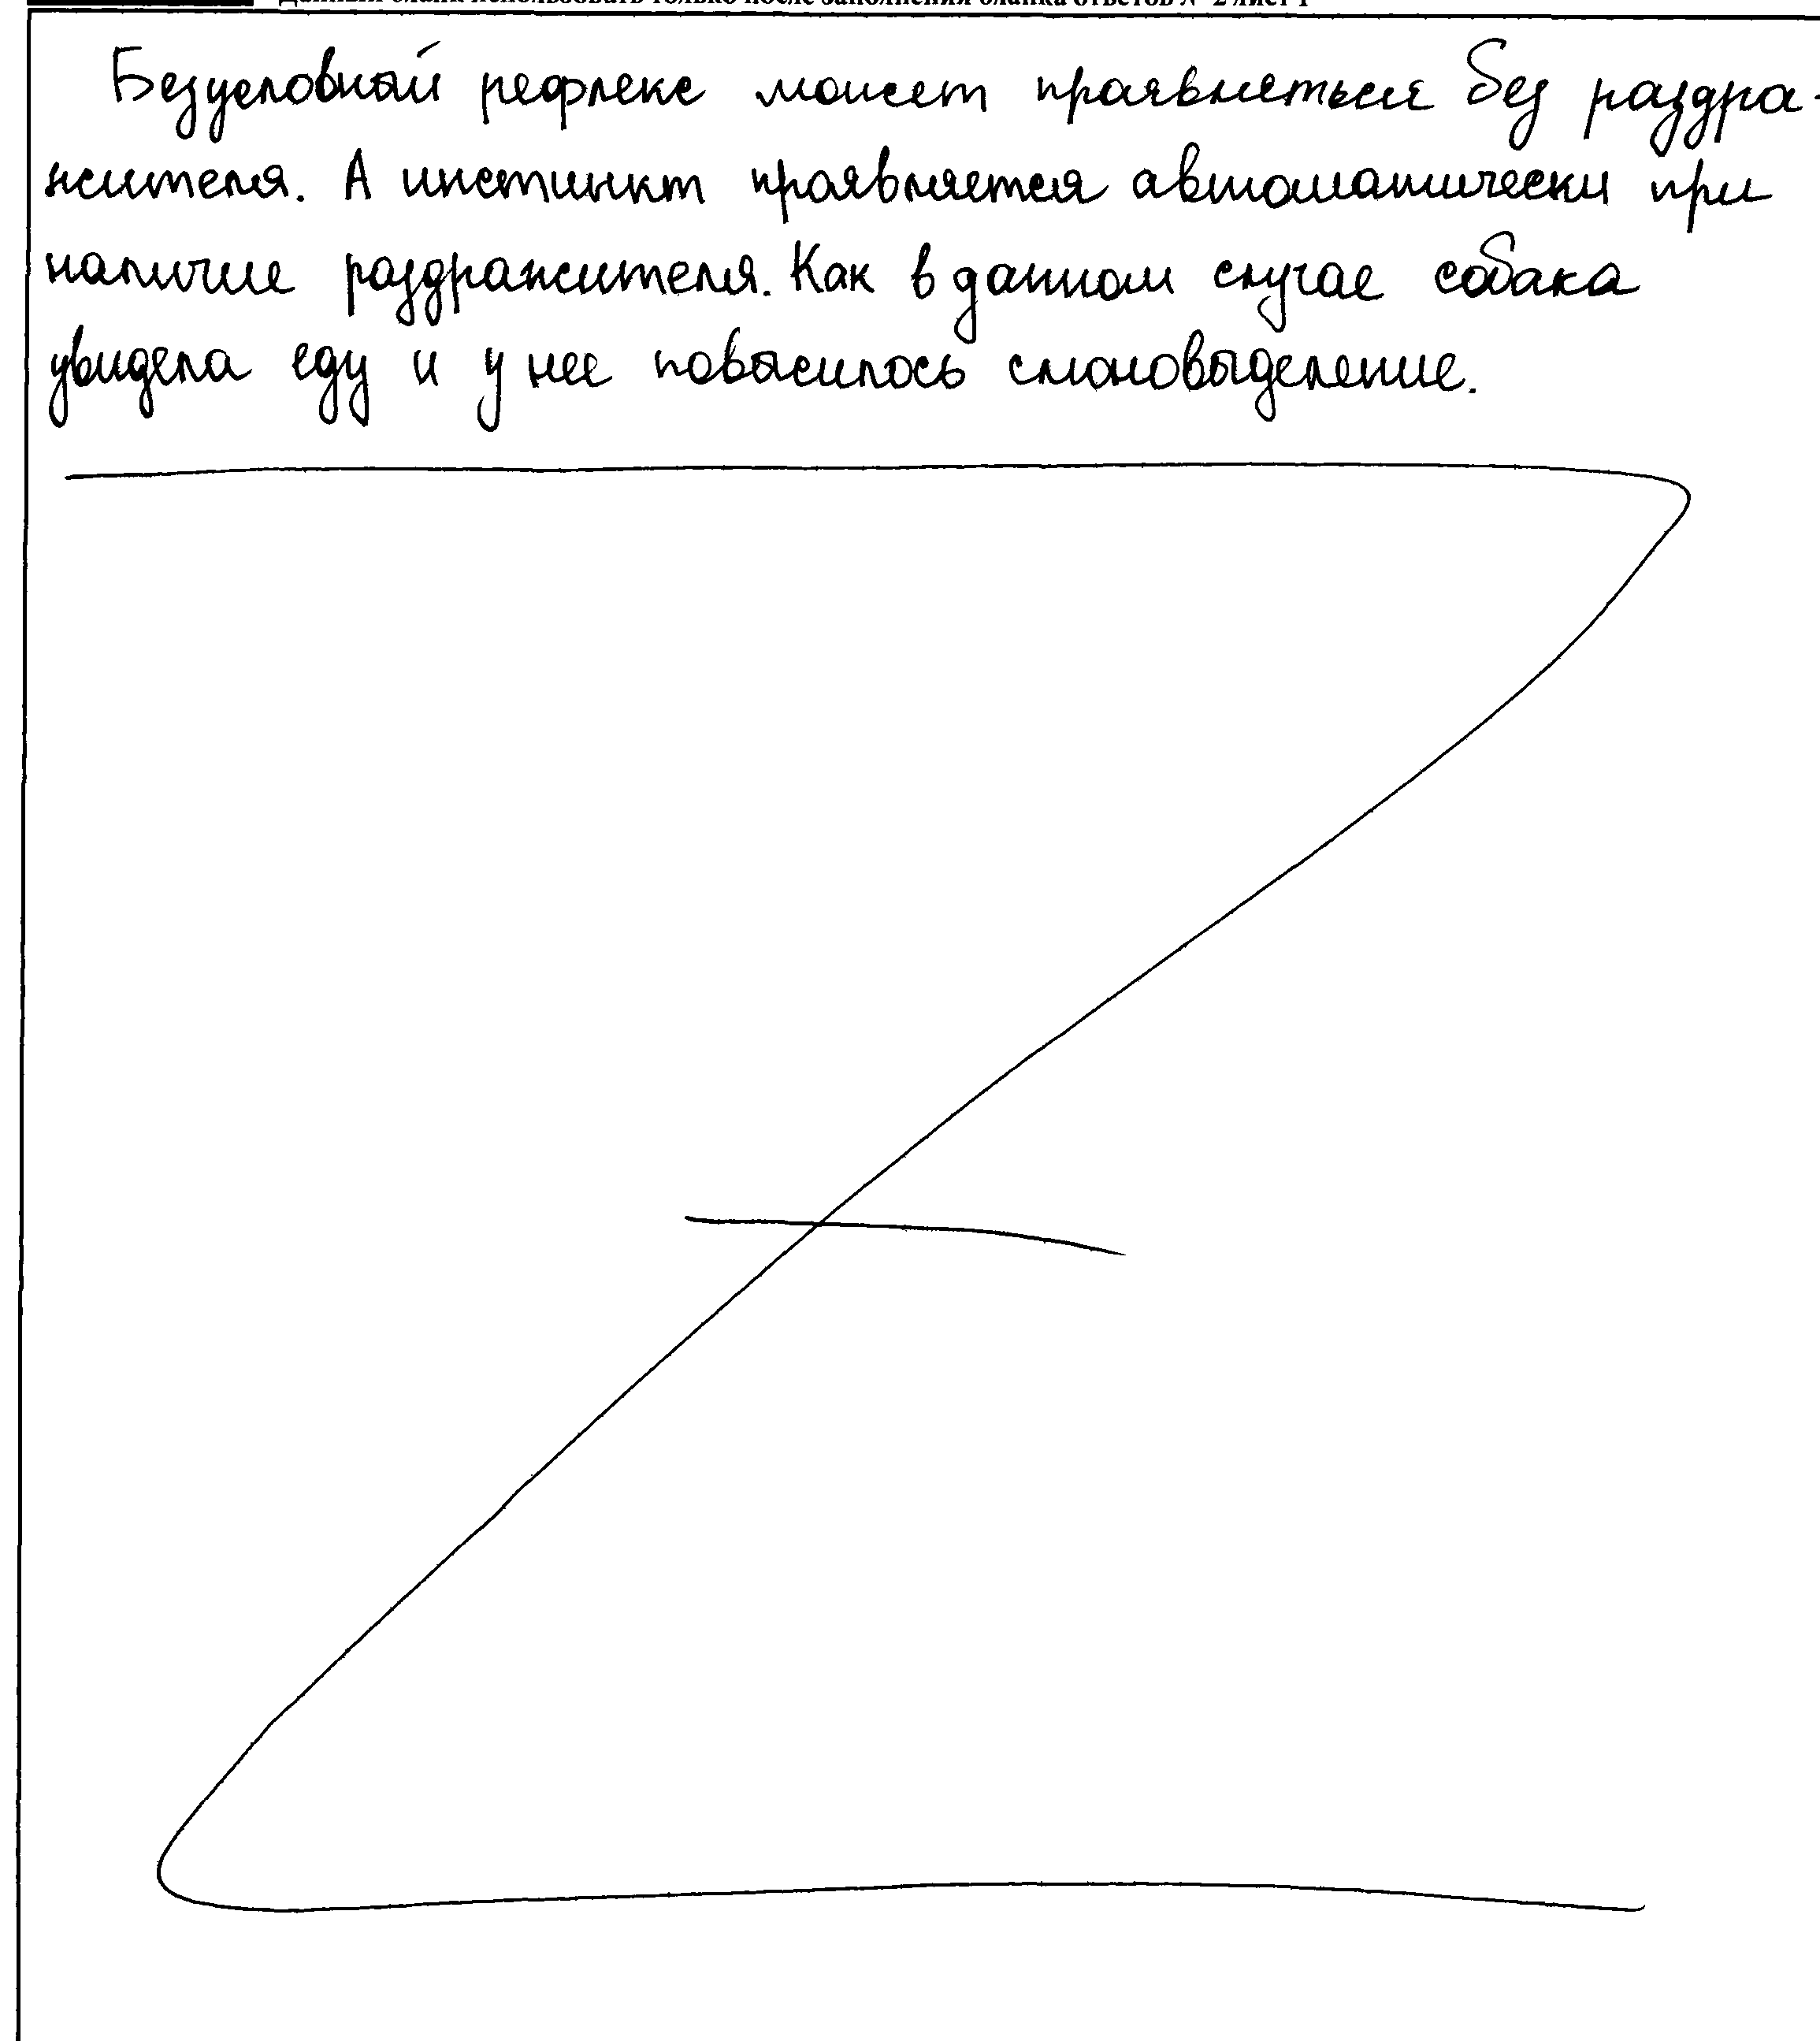 Данный бланк использовать только после заполнения бланка ответов № 2 лист 1
Безусловный рефлекс может проявляеться без раздра-
жителя. А инстинкт проявляется автоматически при
наличие раздражителя. Как в данном случае собака
увидела еду и у нее повысилось слюновыделение.